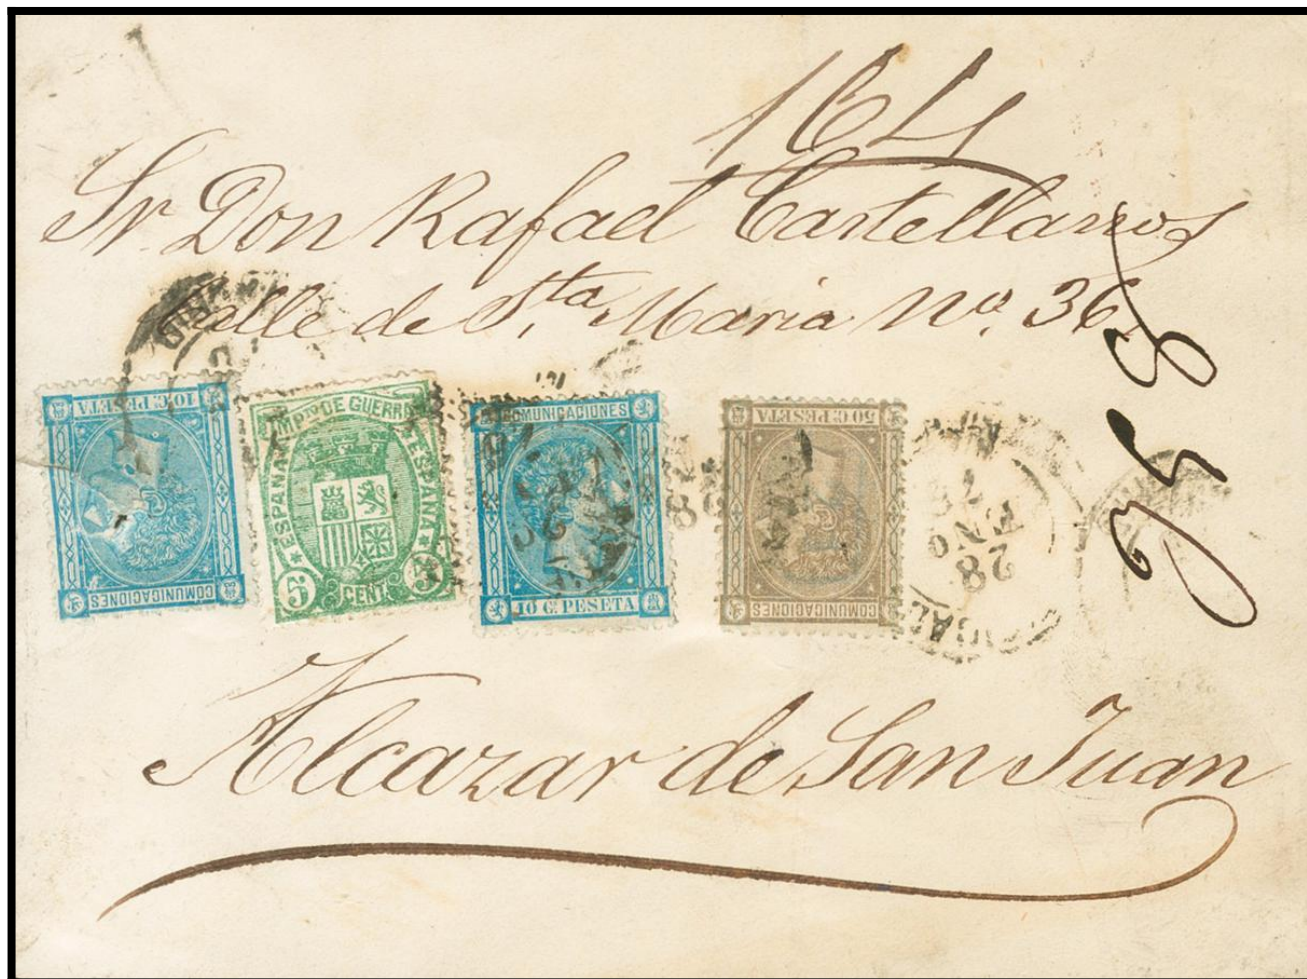 164
Sr. Don Rafael Castellanos
Calle de Sta. Maria No. 36.
10 C. PESETA
COMUNICACIONES
IMPTO DE GUERRA
ESPAÑA
ESPAÑA
5 CENT. 5
COMUNICACIONES
10 C. PESETA
50 C. PESETA
COMUNICACIONES
28
ENE
Alcazar de San Juan